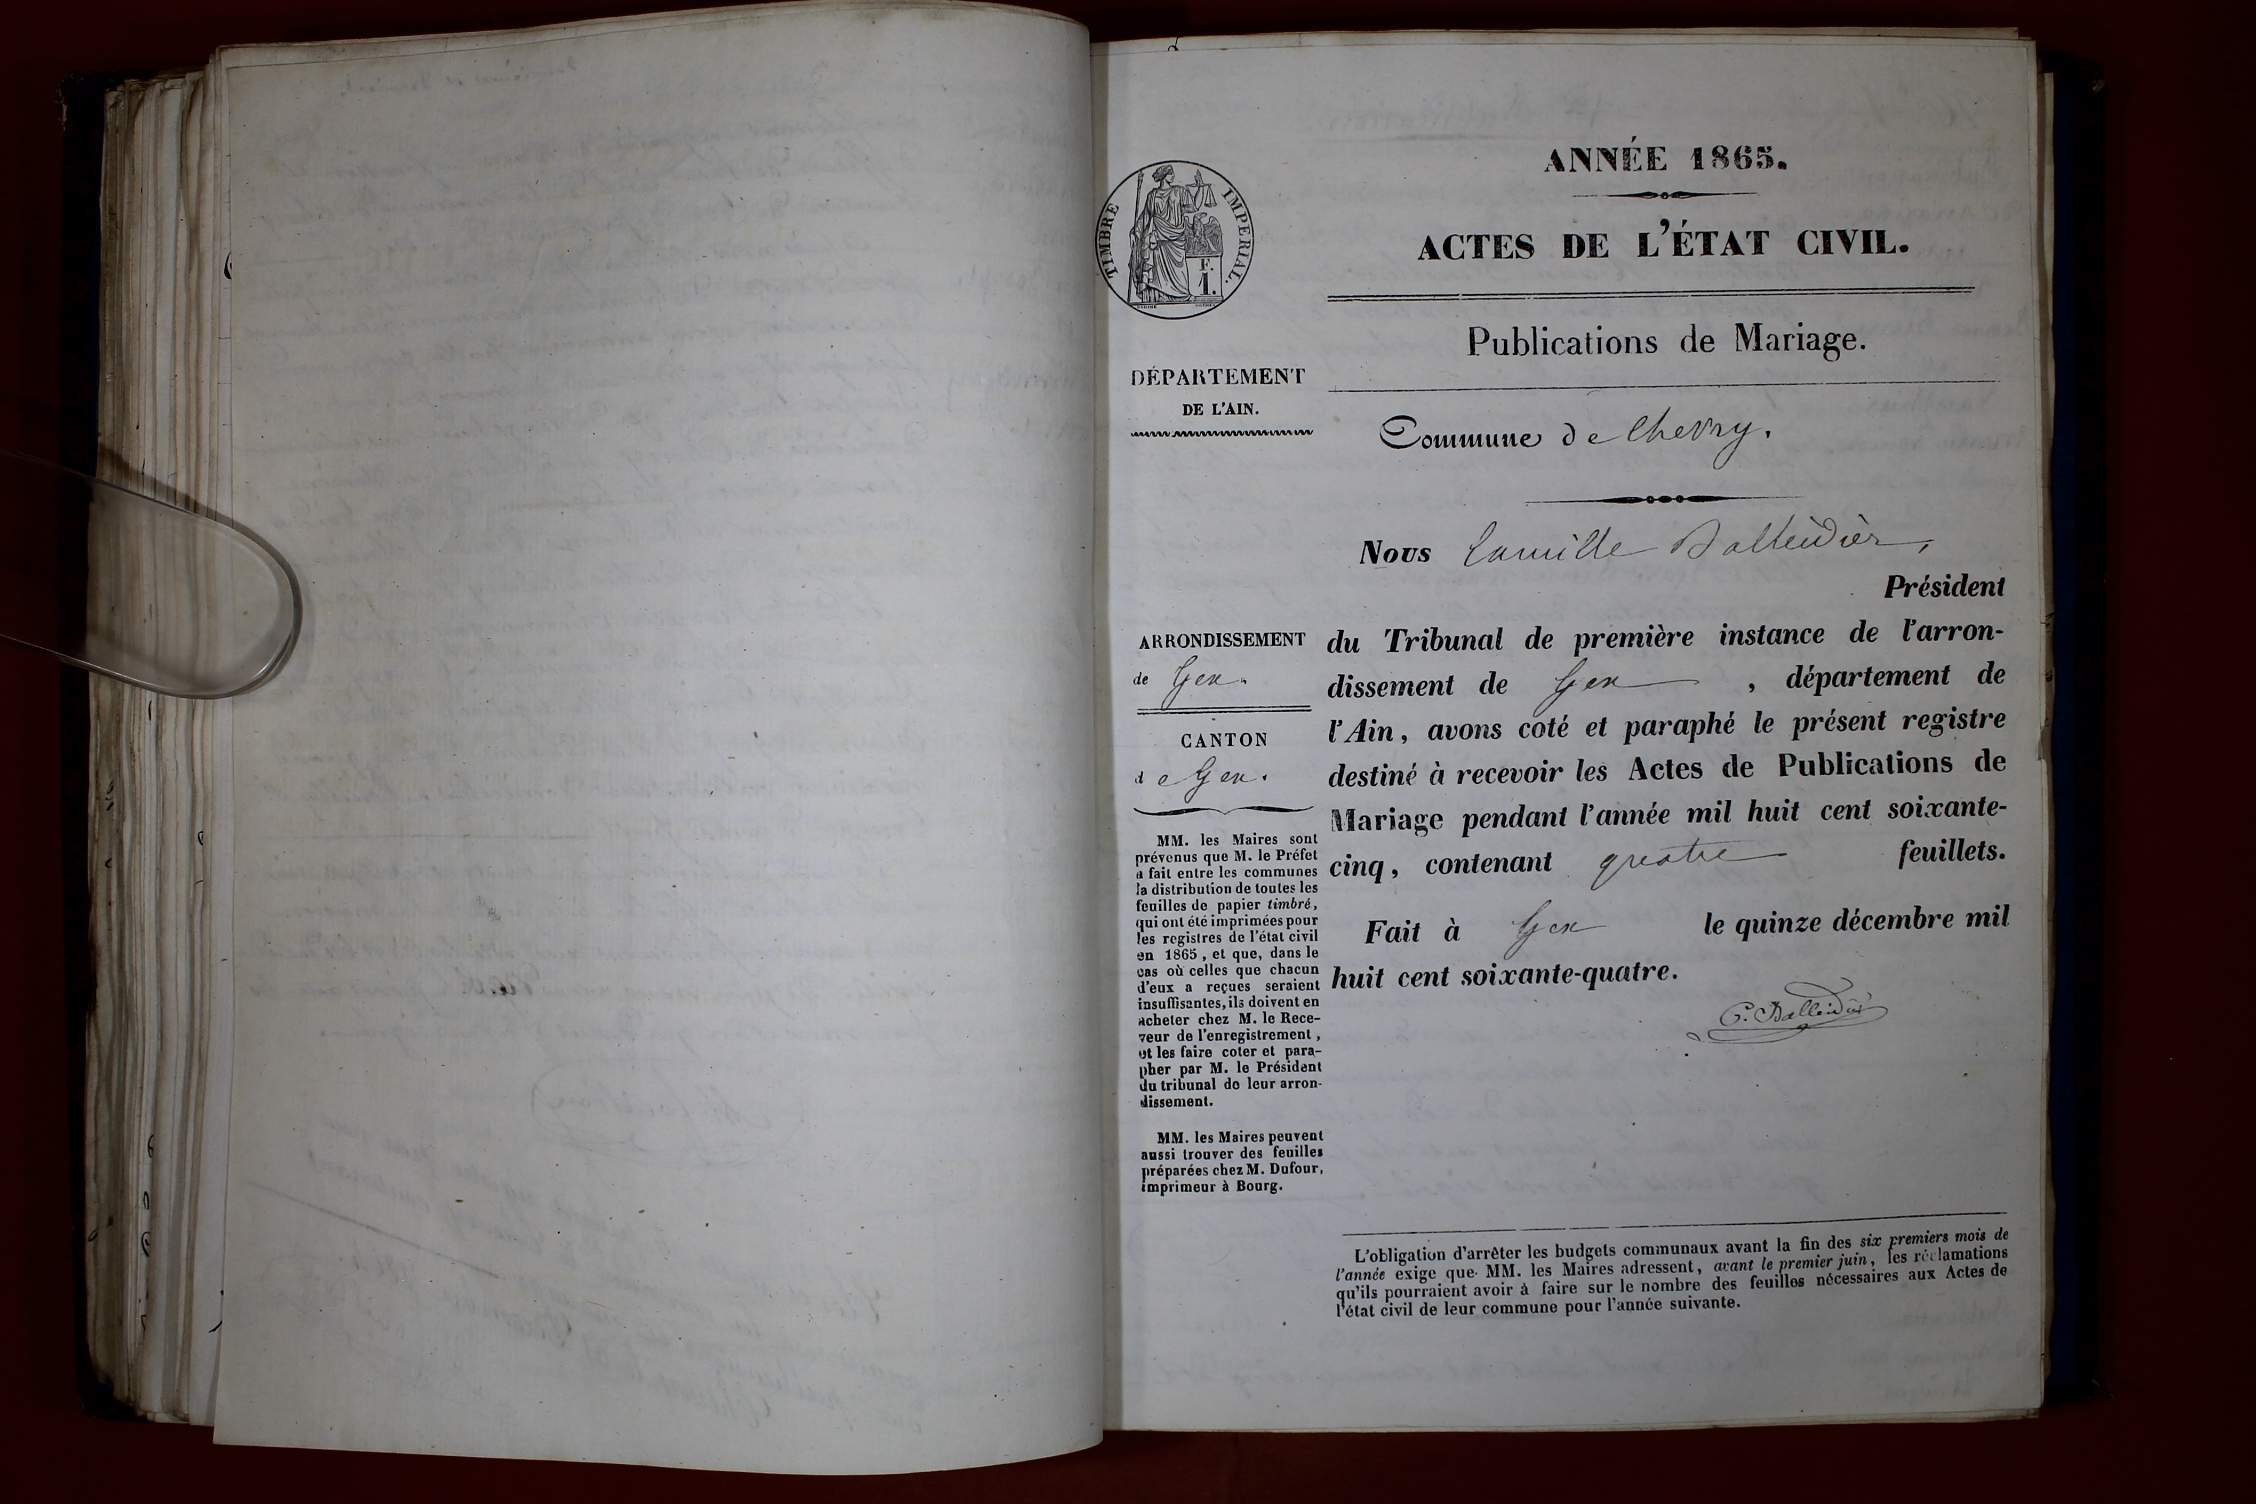 ANNÉE 1865.
ACTES DE L'ÉTAT CIVIL.
Publications de Mariage.
Commune de Chevry.
TIMBRE IMPERIAL.
F.
1.
DÉPARTEMENT
DE L'AIN.
ARRONDISSEMENT
de Gex.
CANTON
de Gex.
MM. les Maires sont
prévenus que M. le Préfet
a fait entre les communes
la distribution de toutes les
feuilles de papier timbré,
qui ont été imprimées pour
les registres de l'état civil
en 1865, et que, dans le
cas où celles que chacun
d'eux a reçues seraient
insuffisantes, ils doivent en
acheter chez M. le Rece-
veur de l'enregistrement,
et les faire coter et para-
pher par M. le Président
du tribunal de leur arron-
dissement.
MM. les Maires peuvent
aussi trouver des feuilles
préparées chez M. Dufour,
imprimeur à Bourg.
Nous Camille Balleidier,
Président
du Tribunal de première instance de l'arron-
dissement de Gex, département de
l'Ain, avons coté et paraphé le présent registre
destiné à recevoir les Actes de Publications de
Mariage pendant l'année mil huit cent soixante-
cinq, contenant quatre feuillets.
Fait à Gex le quinze décembre mil
huit cent soixante-quatre.
C. Balleidier
L'obligation d'arrêter les budgets communaux avant la fin des six premiers mois de
l'année exige que MM. les Maires adressent, avant le premier juin, les réclamations
qu'ils pourraient avoir à faire sur le nombre des feuilles nécessaires aux Actes de
l'état civil de leur commune pour l'année suivante.